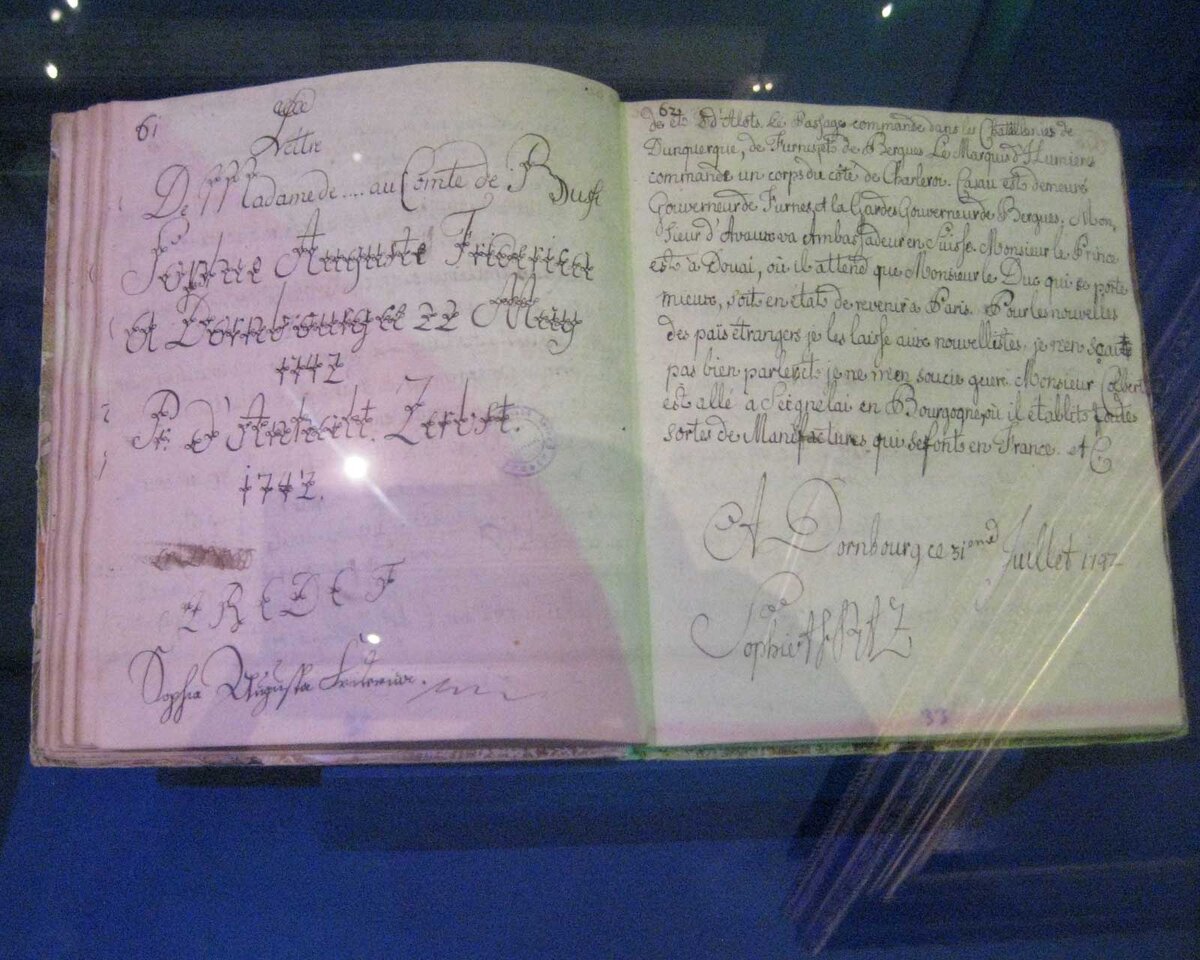 61
Lettre
De Madame de .... au Comte de Bussi
Sophie Auguste Friderica
A Dornbourg ce 22 May
1742
Pr. d'Anhalt. Zerbst.
1742.
A R E D E F
Sophia Augusta Friderica.
62
de et d'Alots. Le Passage commande dans les Chatellenies de
Dunquerque, de Furnes, et de Bergues. Le Marquis d'Humieres
commande un corps du côte de Charleroi. Casau est demeuré
Gouverneur de Furnes, et la Gardes Gouverneur de Bergues. Mon,
sieur d'Avaux va Ambassadeur en Suisse. Monsieur le Prince
est à Douai, où il attend que Monsieur le Duc qui se porte
mieux, soit en état de revenir a Paris. Pour les nouvelles
des païs étrangers je les laisse aux nouvellistes, je n'en sçait
pas bien parler, et je ne m'en soucie guere. Monsieur Colbert
est allé à Seignelai en Bourgogne, où il établit toutes
sortes de Manifactures, qui se font en France. et C
A Dornbourg ce 31 ieme Juillet 1742
Sophie A F P A Z
33